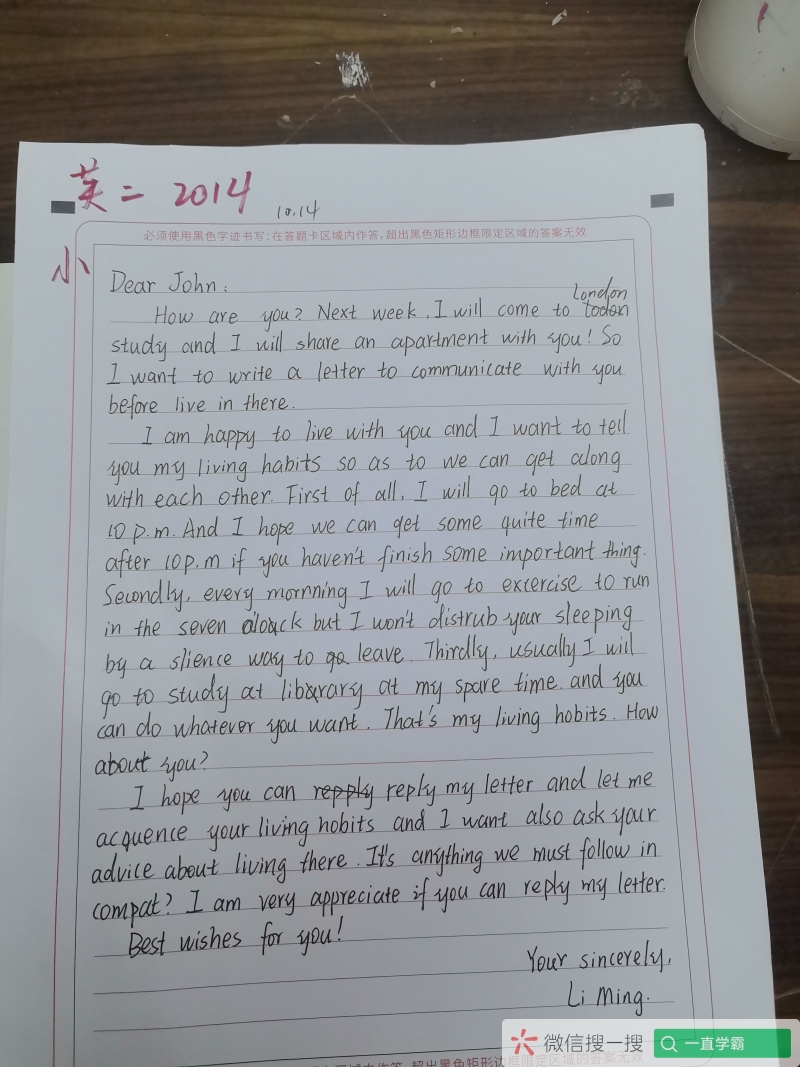 英二 2014
10.14
必须使用黑色字迹书写;在答题卡区域内作答,超出黑色矩形边框限定区域的答案无效
小
Dear John:
London
How are you? Next week, I will come to todon
study and I will share an apartment with you! So
I want to write a letter to communicate with you
before live in there.
I am happy to live with you and I want to tell
you my living habits so as to we can get along
with each other. First of all, I will go to bed at
10 p.m. And I hope we can get some quite time
after 10p.m if you haven't finish some important thing.
Secondly, every mornning I will go to excercise to run
in the seven o'clock but I won't distrub your sleeping
by a slience way to go leave. Thirdly, usually I will
go to study at library at my spare time. and you
can do whatever you want. That's my living hobits. How
about you?
I hope you can repply reply my letter and let me
acquence your living hobits and I want also ask your
advice about living there. It's anything we must follow in
compat? I am very appreciate if you can reply my letter.
Best wishes for you!
Your sincerely,
Li Ming.
微信搜一搜
一直学霸
超出黑色矩形边框限定区域的答案无效